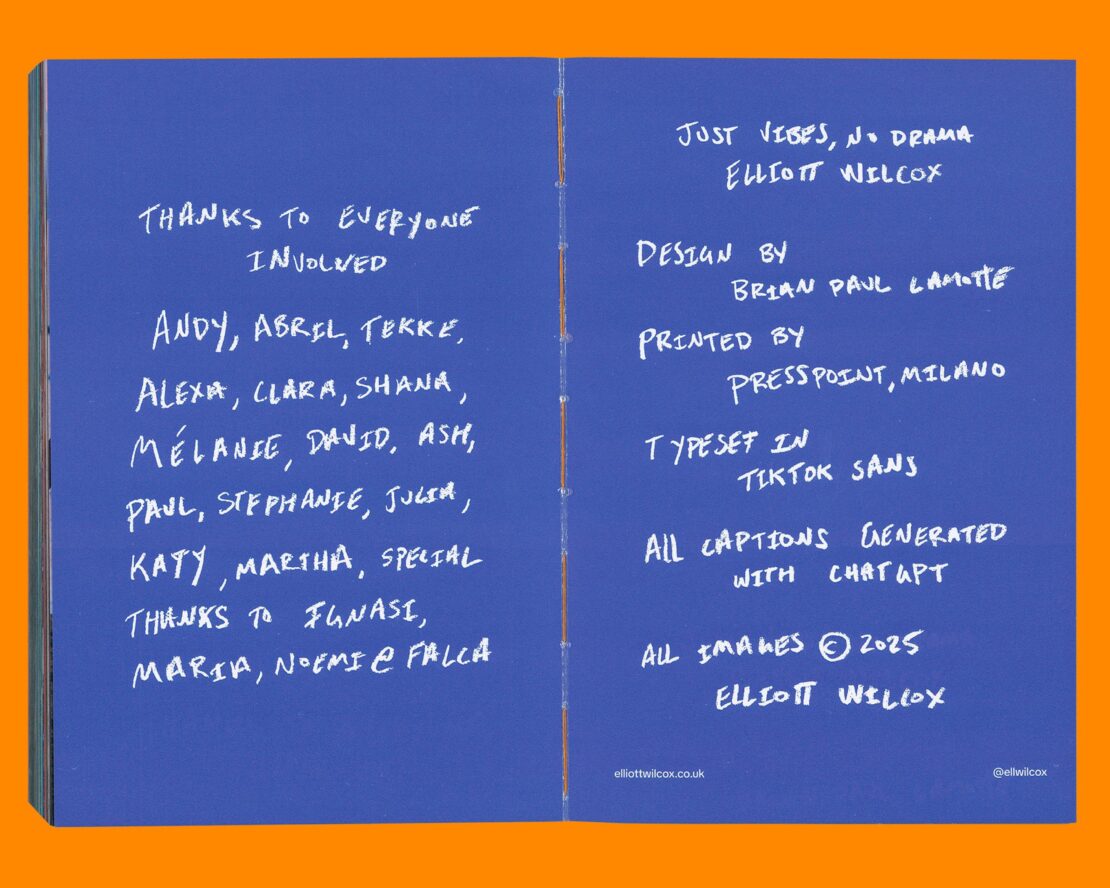 THANKS TO EVERYONE
INVOLVED
ANDY, ABRIL, TEKKE,
ALEXA, CLARA, SHANA,
MÉLANIE, DAVID, ASH,
PAUL, STEPHANIE, JULIA,
KATY, MARTHA, SPECIAL
THANKS TO IGNASI,
MARIA, NOEMI @ FALCA
JUST VIBES, NO DRAMA
ELLIOTT WILCOX
DESIGN BY
BRIAN PAUL LAMOTTE
PRINTED BY
PRESSPOINT, MILANO
TYPESET IN
TIKTOK SANS
ALL CAPTIONS GENERATED
WITH CHATGPT
ALL IMAGES © 2025
ELLIOTT WILCOX
elliottwilcox.co.uk
@ellwilcox